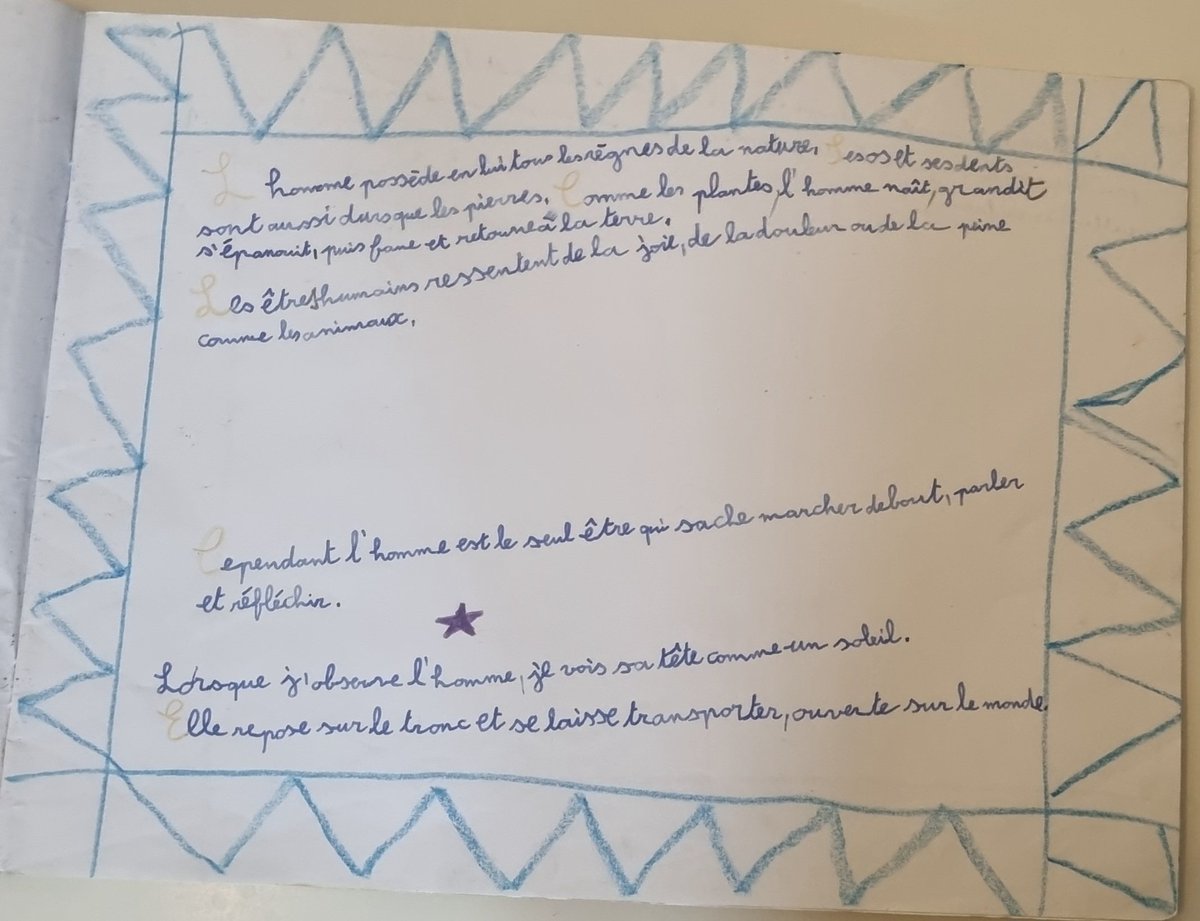 L'homme possède en lui tous les règnes de la nature. Ses os et ses dents
sont aussi durs que les pierres. Comme les plantes, l'homme naît, grandit
s'épanouit, puis fane et retourne à la terre.
Les êtres humains ressentent de la joie, de la douleur ou de la peine
comme les animaux.
Cependant l'homme est le seul être qui sache marcher debout, parler
et réfléchir.
Lorsque j'observe l'homme, je vois sa tête comme un soleil.
Elle repose sur le tronc et se laisse transporter, ouverte sur le monde.